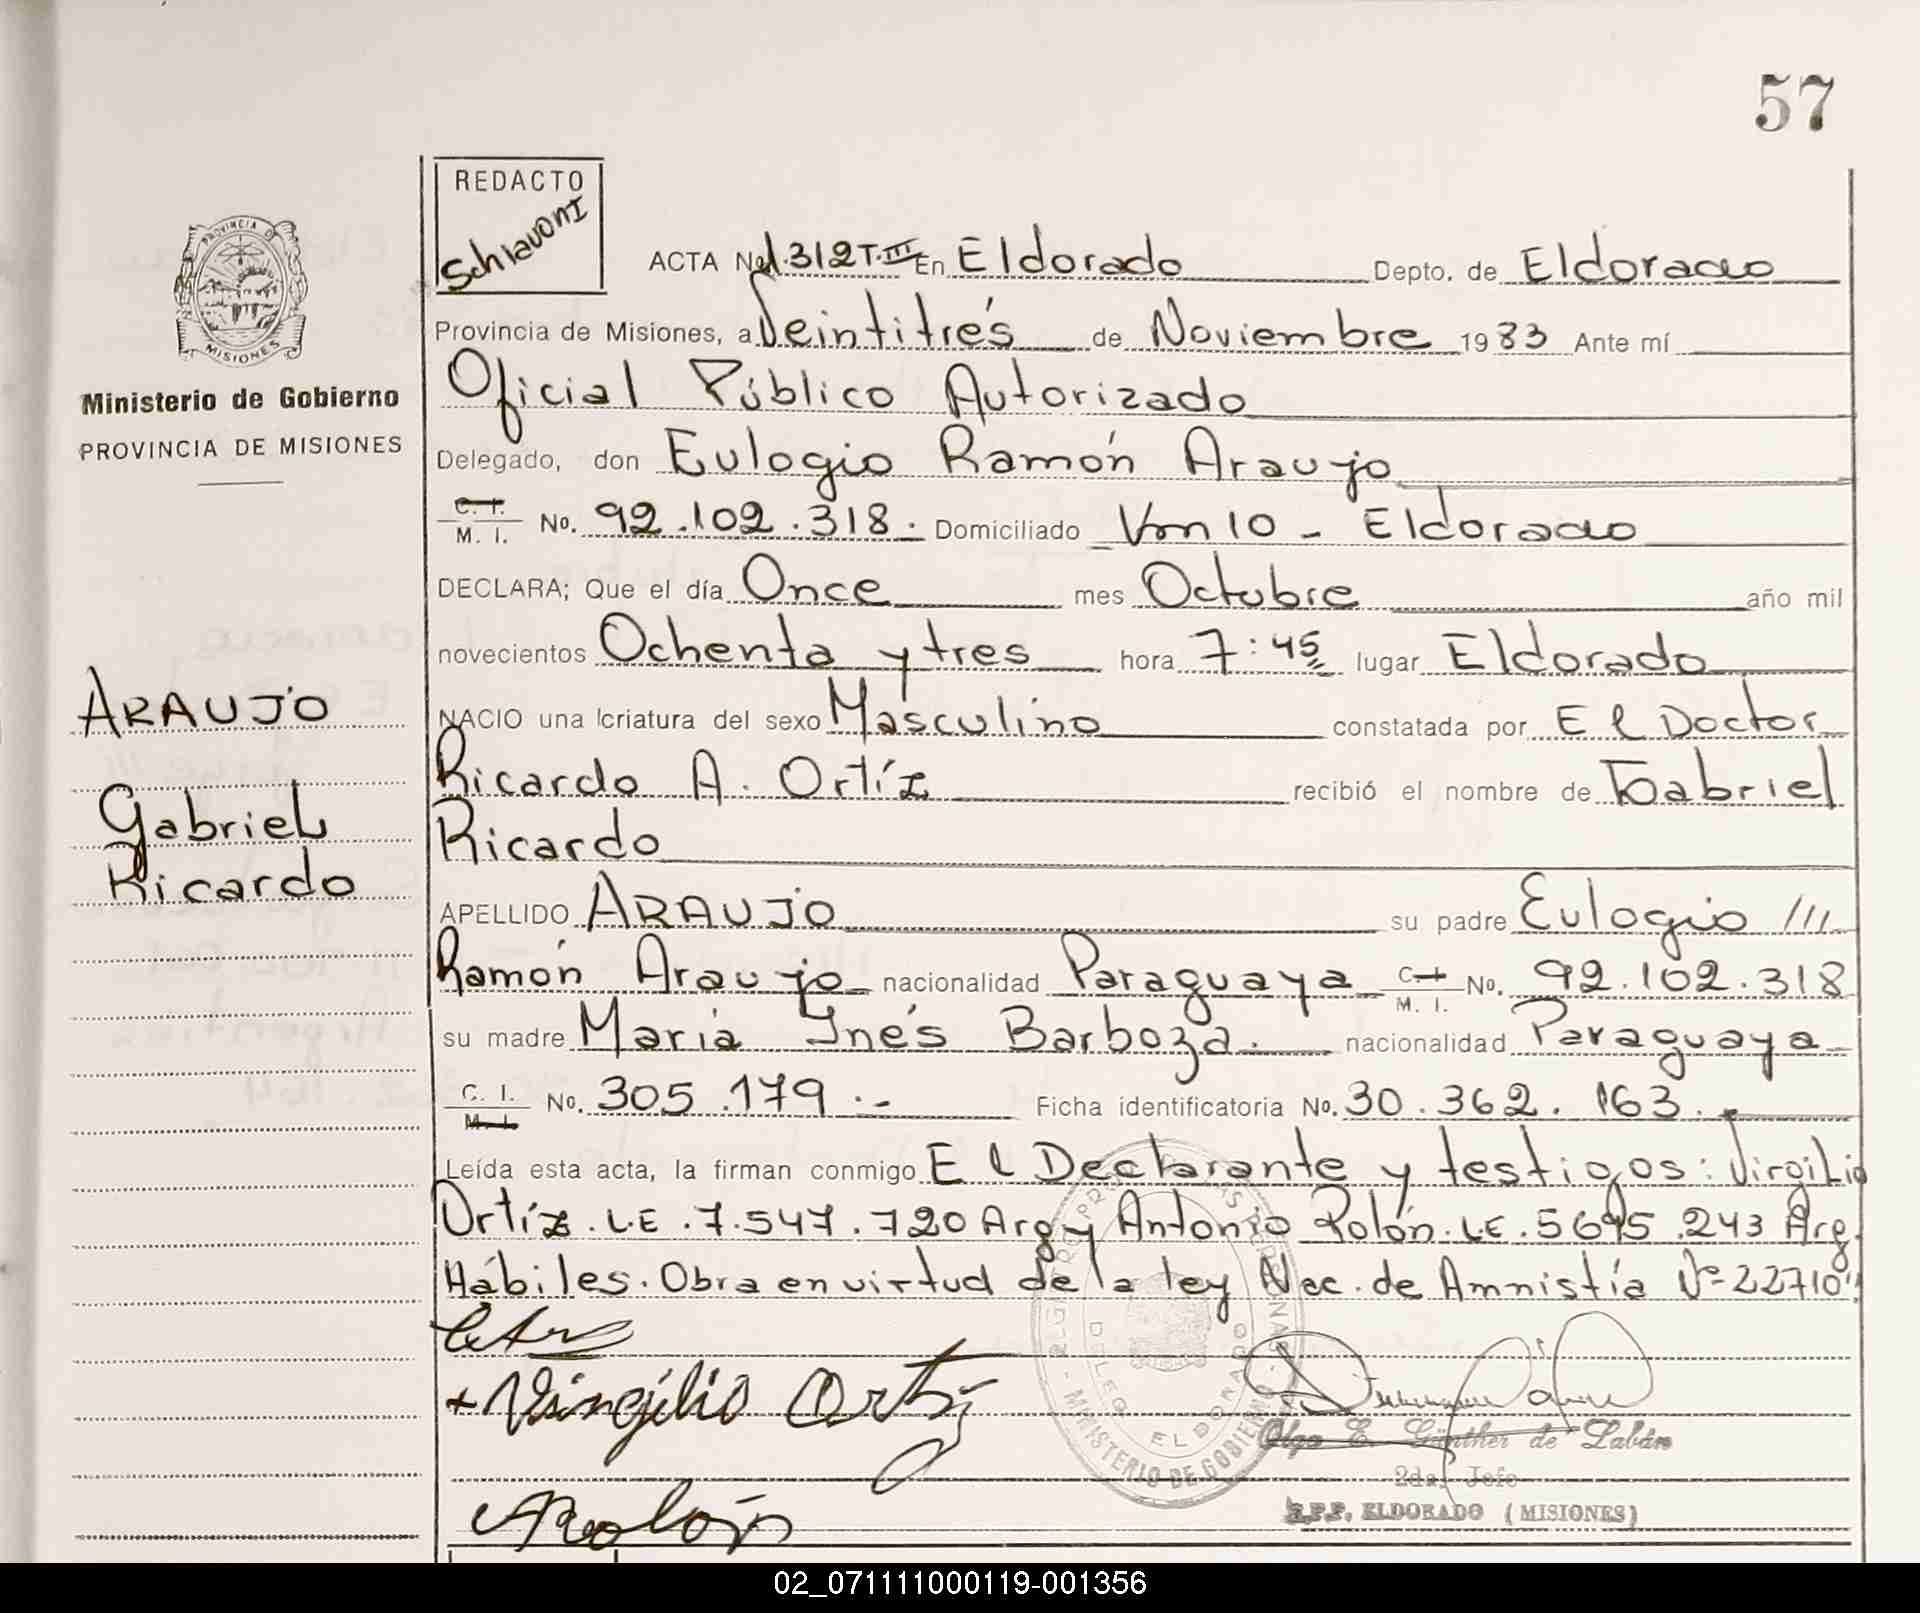 57
REDACTO
Schiavoni
PROVINCIA DE
MISIONES
Ministerio de Gobierno
PROVINCIA DE MISIONES
ARAUJO
Gabriel
Ricardo
ACTA No 1.312 T.III En Eldorado Depto. de Eldorado
Provincia de Misiones, a Veintitrés de Noviembre 1983 Ante mí
Oficial Público Autorizado
Delegado, don Eulogio Ramón Araujo
C. I. M. I. No. 92.102.318. Domiciliado Km 10 - Eldorado
DECLARA; Que el día Once mes Octubre año mil
novecientos Ochenta y tres hora 7:45 lugar Eldorado
NACIO una criatura del sexo Masculino constatada por El Doctor
Ricardo A. Ortíz recibió el nombre de Gabriel
Ricardo
APELLIDO ARAUJO su padre Eulogio ///
Ramón Araujo nacionalidad Paraguaya C. I. M. I. No. 92.102.318
su madre María Ynés Barboza. nacionalidad Paraguaya
C. I. M. I. No. 305.179.- Ficha identificatoria No. 30.362.163.
Leída esta acta, la firman conmigo El Declarante y testigos: Virgilio
Ortíz. L.E. 7.547.720 Arg y Antonio Rolón. L.E. 5695.243 Arg.
Hábiles. Obra en virtud de la ley Nac. de Amnistía Nº 22710"
+ Virgilio Ortiz
Olga E. Günther de Labán
2da. Jefe
R.P.P. ELDORADO (MISIONES)
MINISTERIO DE GOBIERNO
DELEG. ELDORADO
ARolón
02_071111000119-001356